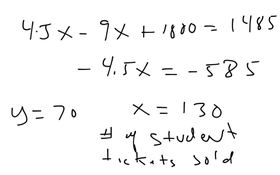 4.5x - 9x + 1800 = 1485
- 4.5x = - 585
y = 70 x = 130
# of student
tickets sold